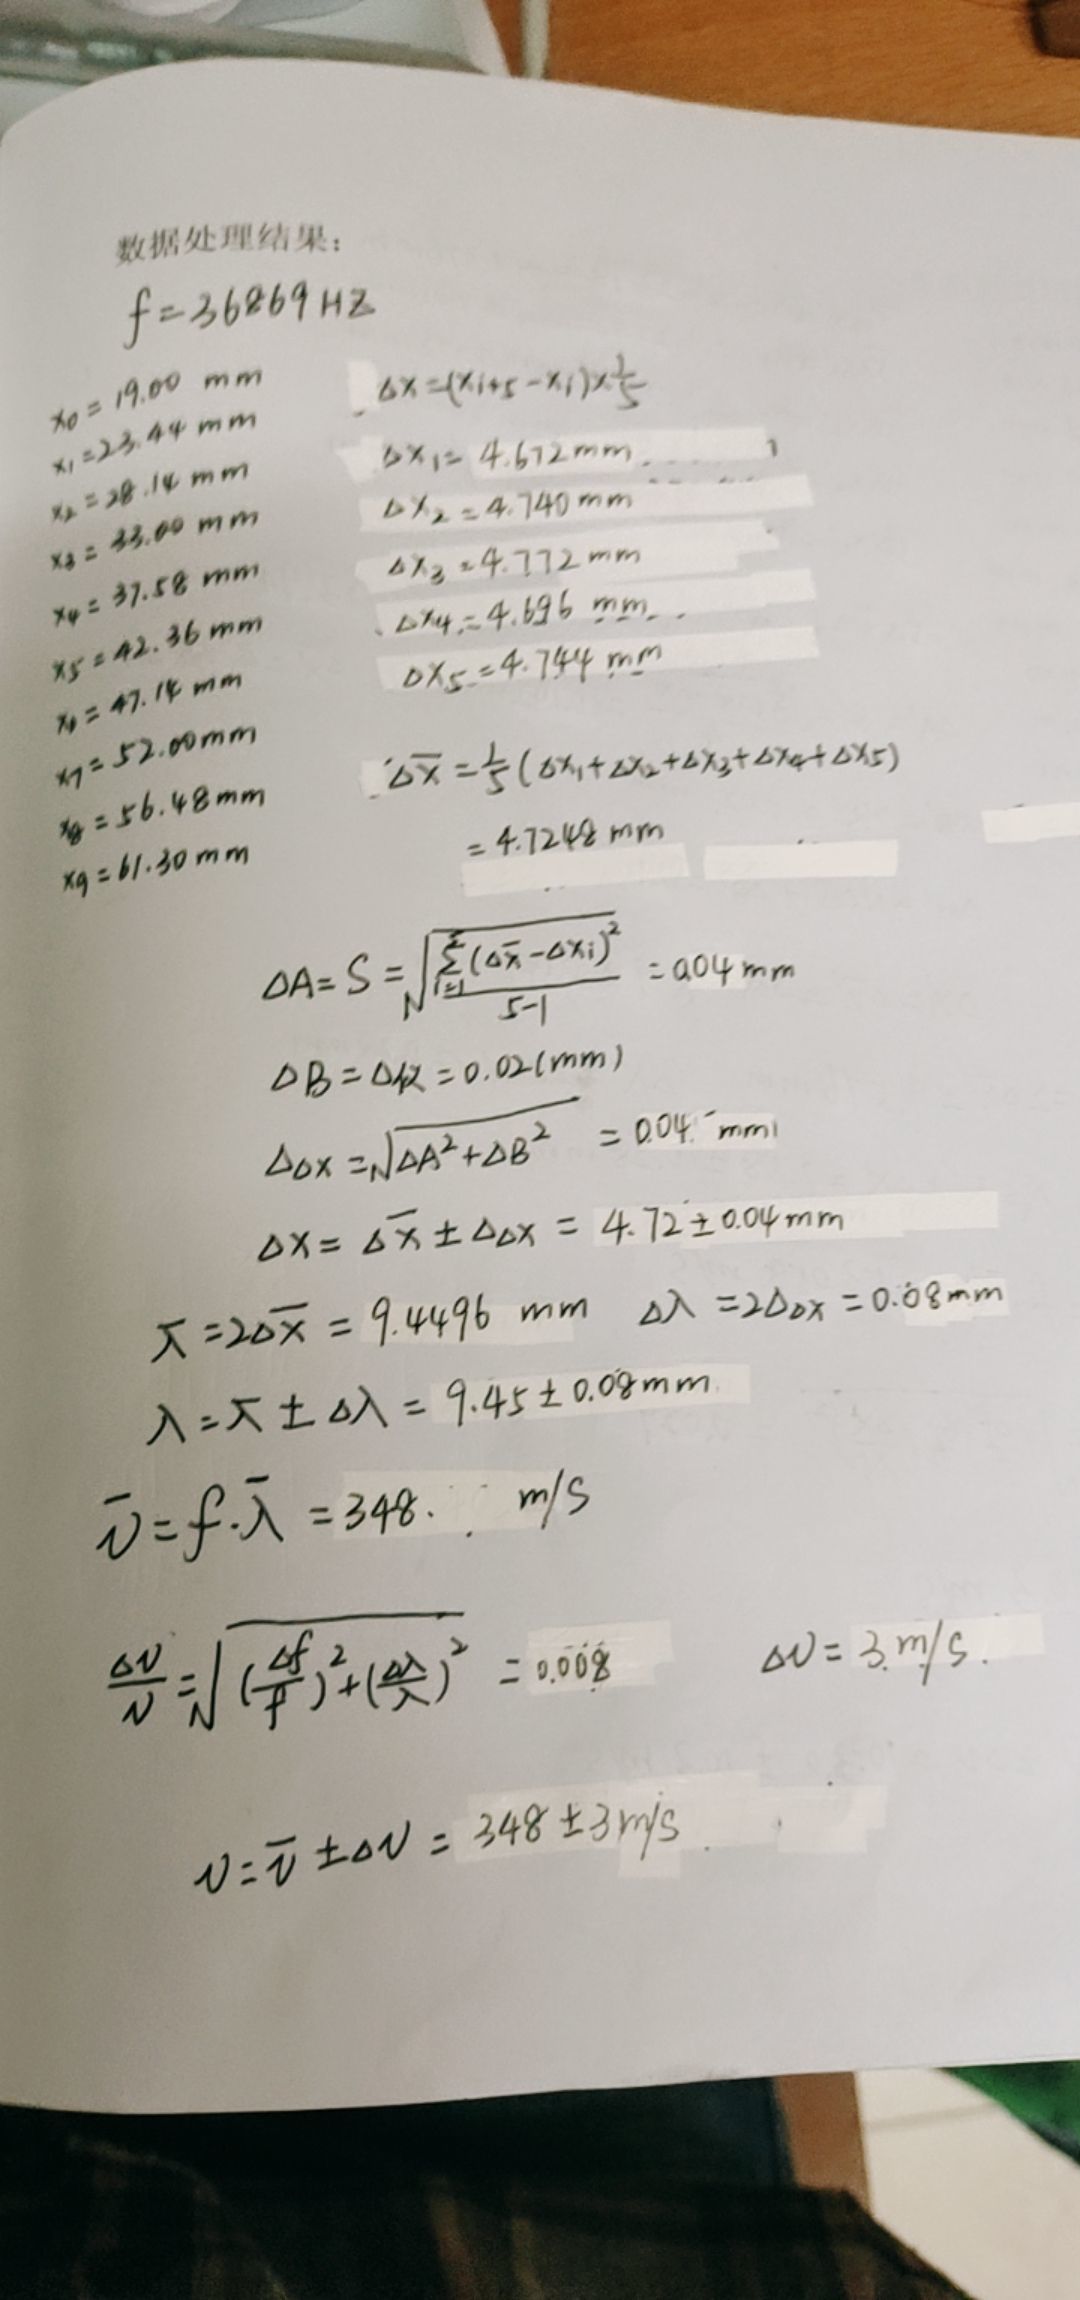 数据处理结果:
f=36869HZ
x₀=19.00 mm
x₁=23.44 mm
x₂=28.14 mm
x₃=33.00 mm
x₄=37.58 mm
x₅=42.36 mm
x₆=47.14 mm
x₇=52.00mm
x₈=56.48mm
x₉=61.30mm
Δx=(xi+5-xi)×1/5
Δx₁=4.672mm
Δx₂=4.740mm
Δx₃=4.772mm
Δx₄=4.696 mm
Δx₅=4.744 mm
Δx̄=1/5(Δx₁+Δx₂+Δx₃+Δx₄+Δx₅)
=4.7248 mm
ΔA=S=√(Σ(Δx̄-Δxi)²/(5-1))=0.04mm
ΔB=Δ仪=0.02(mm)
ΔΔx=√(ΔA²+ΔB²)=0.04 mm
Δx=Δx̄±ΔΔx=4.72±0.04mm
λ̄=2Δx̄=9.4496 mm Δλ=2ΔΔx=0.08mm
λ=λ̄±Δλ=9.45±0.08mm
v̄=f·λ̄=348. m/s
Δv/v=√((Δf/f)²+(Δλ/λ)²)=0.008 Δv=3m/s.
v=v̄±Δv=348±3m/s